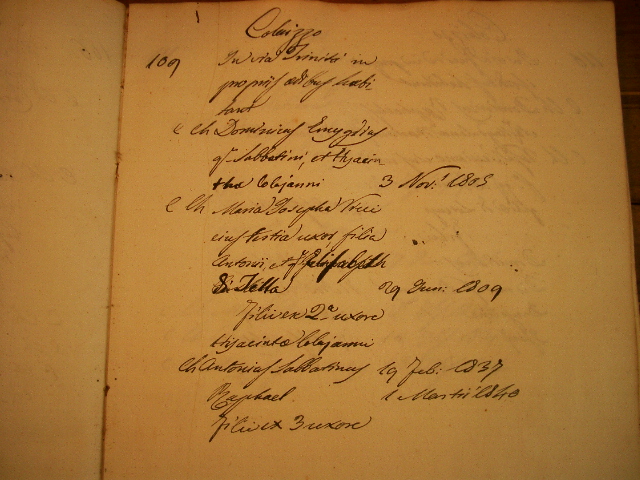 Colaizzo
109 In via Trinitis in
propriis ædibus habi
tant
C Ch Dominicus Emygdius
q.m Sabbatini, et Hyacin
thæ Colajanni 3 Nov: 1805
C Ch Maria Josepha
ejus tertia uxor filia
Antonii, et Elisabeth
Di Tella 29 Jun: 1809
Filii ex 2a uxore
Hyjacinta Colajanni
Ch Antonius Sabbatinus 19 Feb: 1837
Raphael 1 Martii 1840
Filii ex 3 uxore